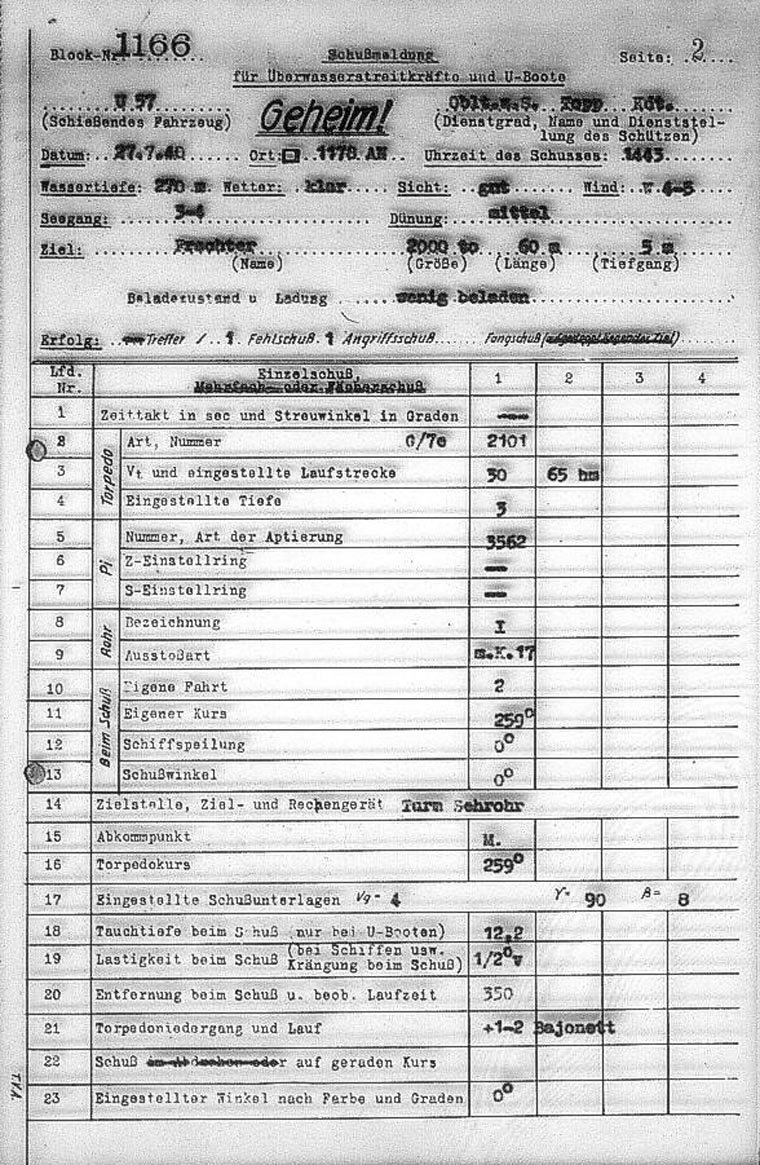 Block-Nr 1166 Schußmeldung Seite: 2
für Überwasserstreitkräfte und U-Boote
U 57 Geheim! Oblt.z.S. Topp Kdt.
(Schießendes Fahrzeug) (Dienstgrad, Name und Dienststel-
lung des Schützen)
Datum: 27.7.40 Ort: 1170 AM Uhrzeit des Schusses: 1443
Wassertiefe: 270 m. Wetter: klar Sicht: gut Wind: W 4-5
Seegang: 3-4 Dünung: mittel
Ziel: Frachter 2000 to 60 m 5 m
(Name) (Größe) (Länge) (Tiefgang)
Beladezustand u Ladung wenig beladen
Erfolg: Treffer / 1 Fehlschuß 1 Angriffsschuß Fangschuß
Lfd. Nr. Einzelschuß, 1 2 3 4
Mehrfach- oder Fächerschuß
1 Zeittakt in sec und Streuwinkel in Graden —
Torpedo
2 Art, Nummer G/7e 2101
3 Vt und eingestellte Laufstrecke 30 65 hm
4 Eingestellte Tiefe 3
Pi
5 Nummer, Art der Aptierung 3562
6 Z-Einstellring —
7 S-Einstellring —
Rohr
8 Bezeichnung I
9 Ausstoßart m.K.17
Beim Schuß
10 Eigene Fahrt 2
11 Eigener Kurs 259°
12 Schiffspeilung 0°
13 Schußwinkel 0°
14 Zielstelle, Ziel- und Rechengerät Turm Sehrohr
15 Abkommpunkt M.
16 Torpedokurs 259°
17 Eingestellte Schußunterlagen Vg= 4 γ= 90 β= 8
18 Tauchtiefe beim Schuß (nur bei U-Booten) 12,2
19 Lastigkeit beim Schuß (bei Schiffen usw. Krängung beim Schuß) 1/2°v
20 Entfernung beim Schuß u. beob. Laufzeit 350
21 Torpedoniedergang und Lauf +1-2 Bajonett
22 Schuß im Abdrehen oder auf geraden Kurs
23 Eingestellter Winkel nach Farbe und Graden 0°